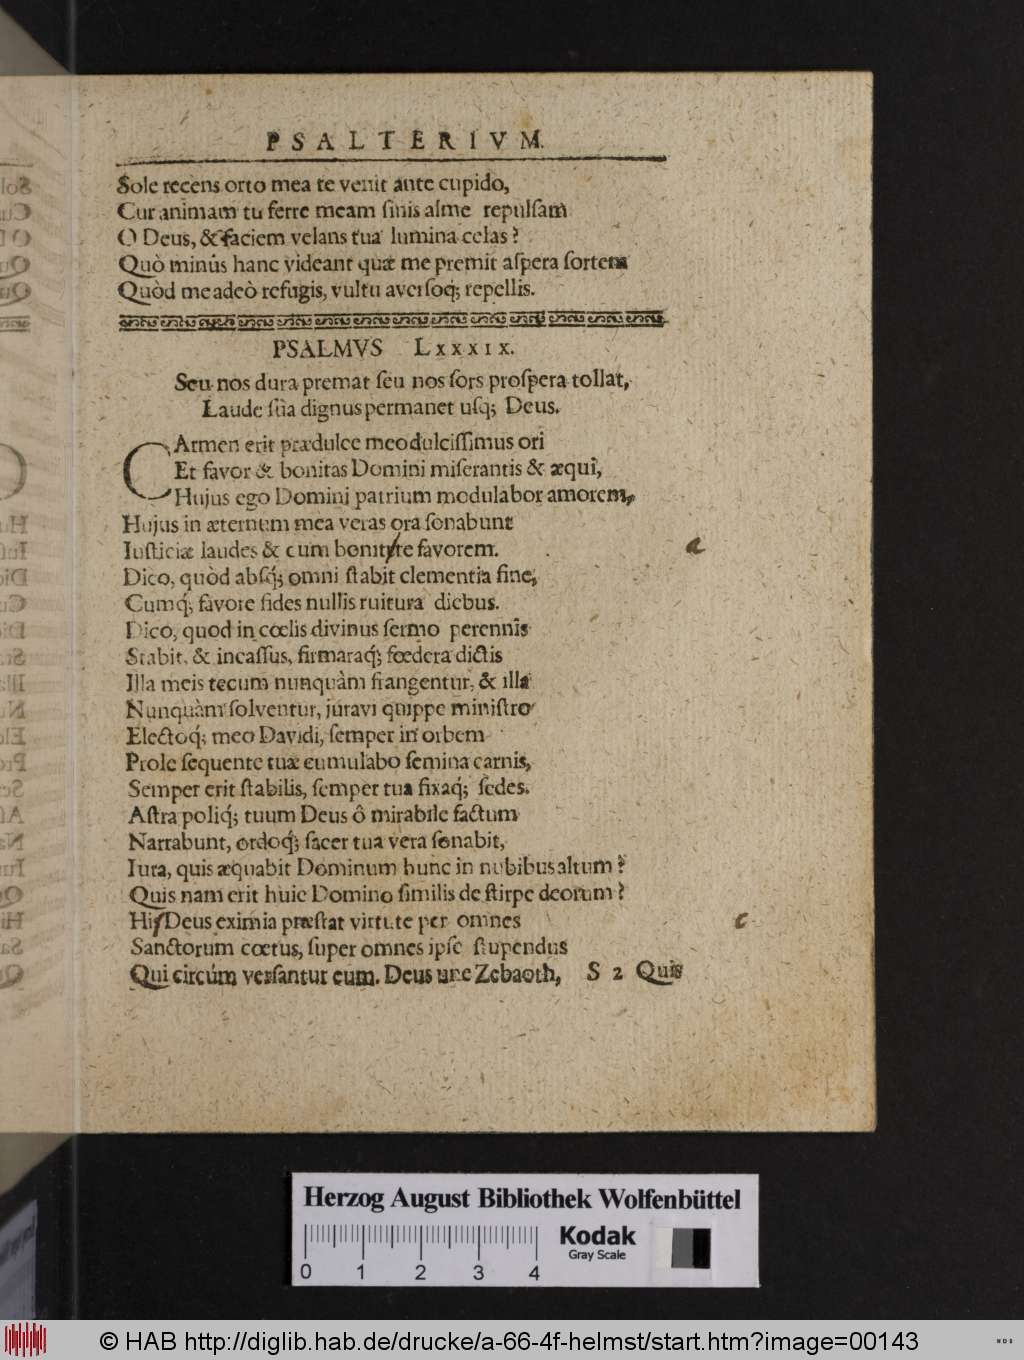 PSALTERIVM.
Sole recens orto mea te venit ante cupido,
Cur animam tu ferre meam ſinis alme repulſam
O Deus, & faciem velans tua lumina celas?
Quò minús hanc videant quæ me premit aſpera ſortem
Quòd me adeò refugis, vultu averſoq; repellis.
PSALMVS Lxxxix.
Seu nos dura premat ſeu nos ſors proſpera tollat,
Laude ſua dignus permanet uſq; Deus.
CArmen erit prædulce meo dulciſſimus ori
Et favor & bonitas Domini miſerantis & æqui,
Hujus ego Domini patrium modulabor amorem,
Hujus in æternum mea veras ora ſonabunt
Iuſticiæ laudes & cum bonitate favorem. a
Dico, quòd abſq; omni ſtabit clementia fine,
Cumq; favore fides nullis ruitura diebus.
Dico, quod in cœlis divinus ſermo perennis
Stabit, & incaſſus, firmaraq; fœdera dictis
Illa meis tecum nunquàm frangentur, & illa
Nunquàm ſolventur, juravi quippe miniſtro
Electoq; meo Davidi, ſemper in orbem
Prole ſequente tuæ cumulabo ſemina carnis,
Semper erit ſtabilis, ſemper tua fixaq; ſedes.
Aſtra poliq; tuum Deus ô mirabile factum
Narrabunt, ordoq; ſacer tua vera ſonabit,
Iura, quis æquabit Dominum hunc in nubibus altum?
Quis nam erit huic Domino ſimilis de ſtirpe deorum?
Hiſ Deus eximia præſtat virtute per omnes c
Sanctorum cœtus, ſuper omnes ipſe ſtupendus
Qui circúm verſantur eum. Deus une Zebaoth, S 2 Quis
Herzog August Bibliothek Wolfenbüttel
Kodak
Gray Scale
0 1 2 3 4
© HAB http://diglib.hab.de/drucke/a-66-4f-helmst/start.htm?image=00143